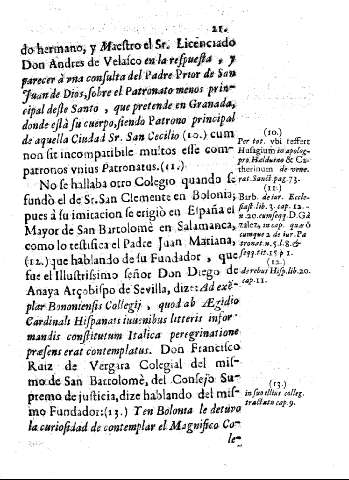 21.
do hermano, y Maestro el Sr. Licenciado
Don Andres de Velasco en la respuesta, y
parecer à vna consulta del Padre Prior de San
Juan de Dios, sobre el Patronato menos prin-
cipal deste Santo, que pretende en Granada,
donde està su cuerpo, siendo Patrono principal
de aquella Ciudad Sr. San Cecilio (10.) cum
non sit incompatibile multos esse com-
patronos vnius Patronatus. (11.)
No se hallaba otro Colegio quando se
fundò el de Sr. San Clemente en Bolonia;
pues à su imitacion se erigiò en España el
Mayor de San Bartolomè en Salamanca,
como lo testifica el Padre Juan Mariana,
(12.) que hablando de su Fundador, que
fue el Illustrissimo señor Don Diego de
Anaya Arçobispo de Sevilla, dize: Ad exē-
plar Bononiensis Collegij, quod ab Ægidio
Cardinals Hispanis iuuenibus litteris infor-
mandis constitutum Italica peregrinatione
præsens erat contemplatus. Don Francisco
Ruiz de Vergara Colegial del mis-
mo de San Bartolomè, del Consejo Su-
premo de justicia, dize hablando del mis-
mo Fundador: (13.) Y en Bolonia le detuvo
la curiosidad de contemplar el Magnifico Co-
le-
(10.)
Per tot. vbi testere
Hasagium in apolog-
pro. Halduino & Ca-
therinum de vene.
rat. Sanct. pag. 73.
(11.)
Barb. de iur. Eccle-
siast. lib. 3. cap. 12. -
n. 20. cum seqq. D. Gō
zalez, in cap. quæ ō
cumque 2. de iur. Pa
tronat. n. 5. l. 8. &
seqq. tit. 15 p 1.
(12.)
de rebus Hisp. lib. 20.
cap. 11.
(13.)
in suo illius colleg.
tractatu cap. 9.